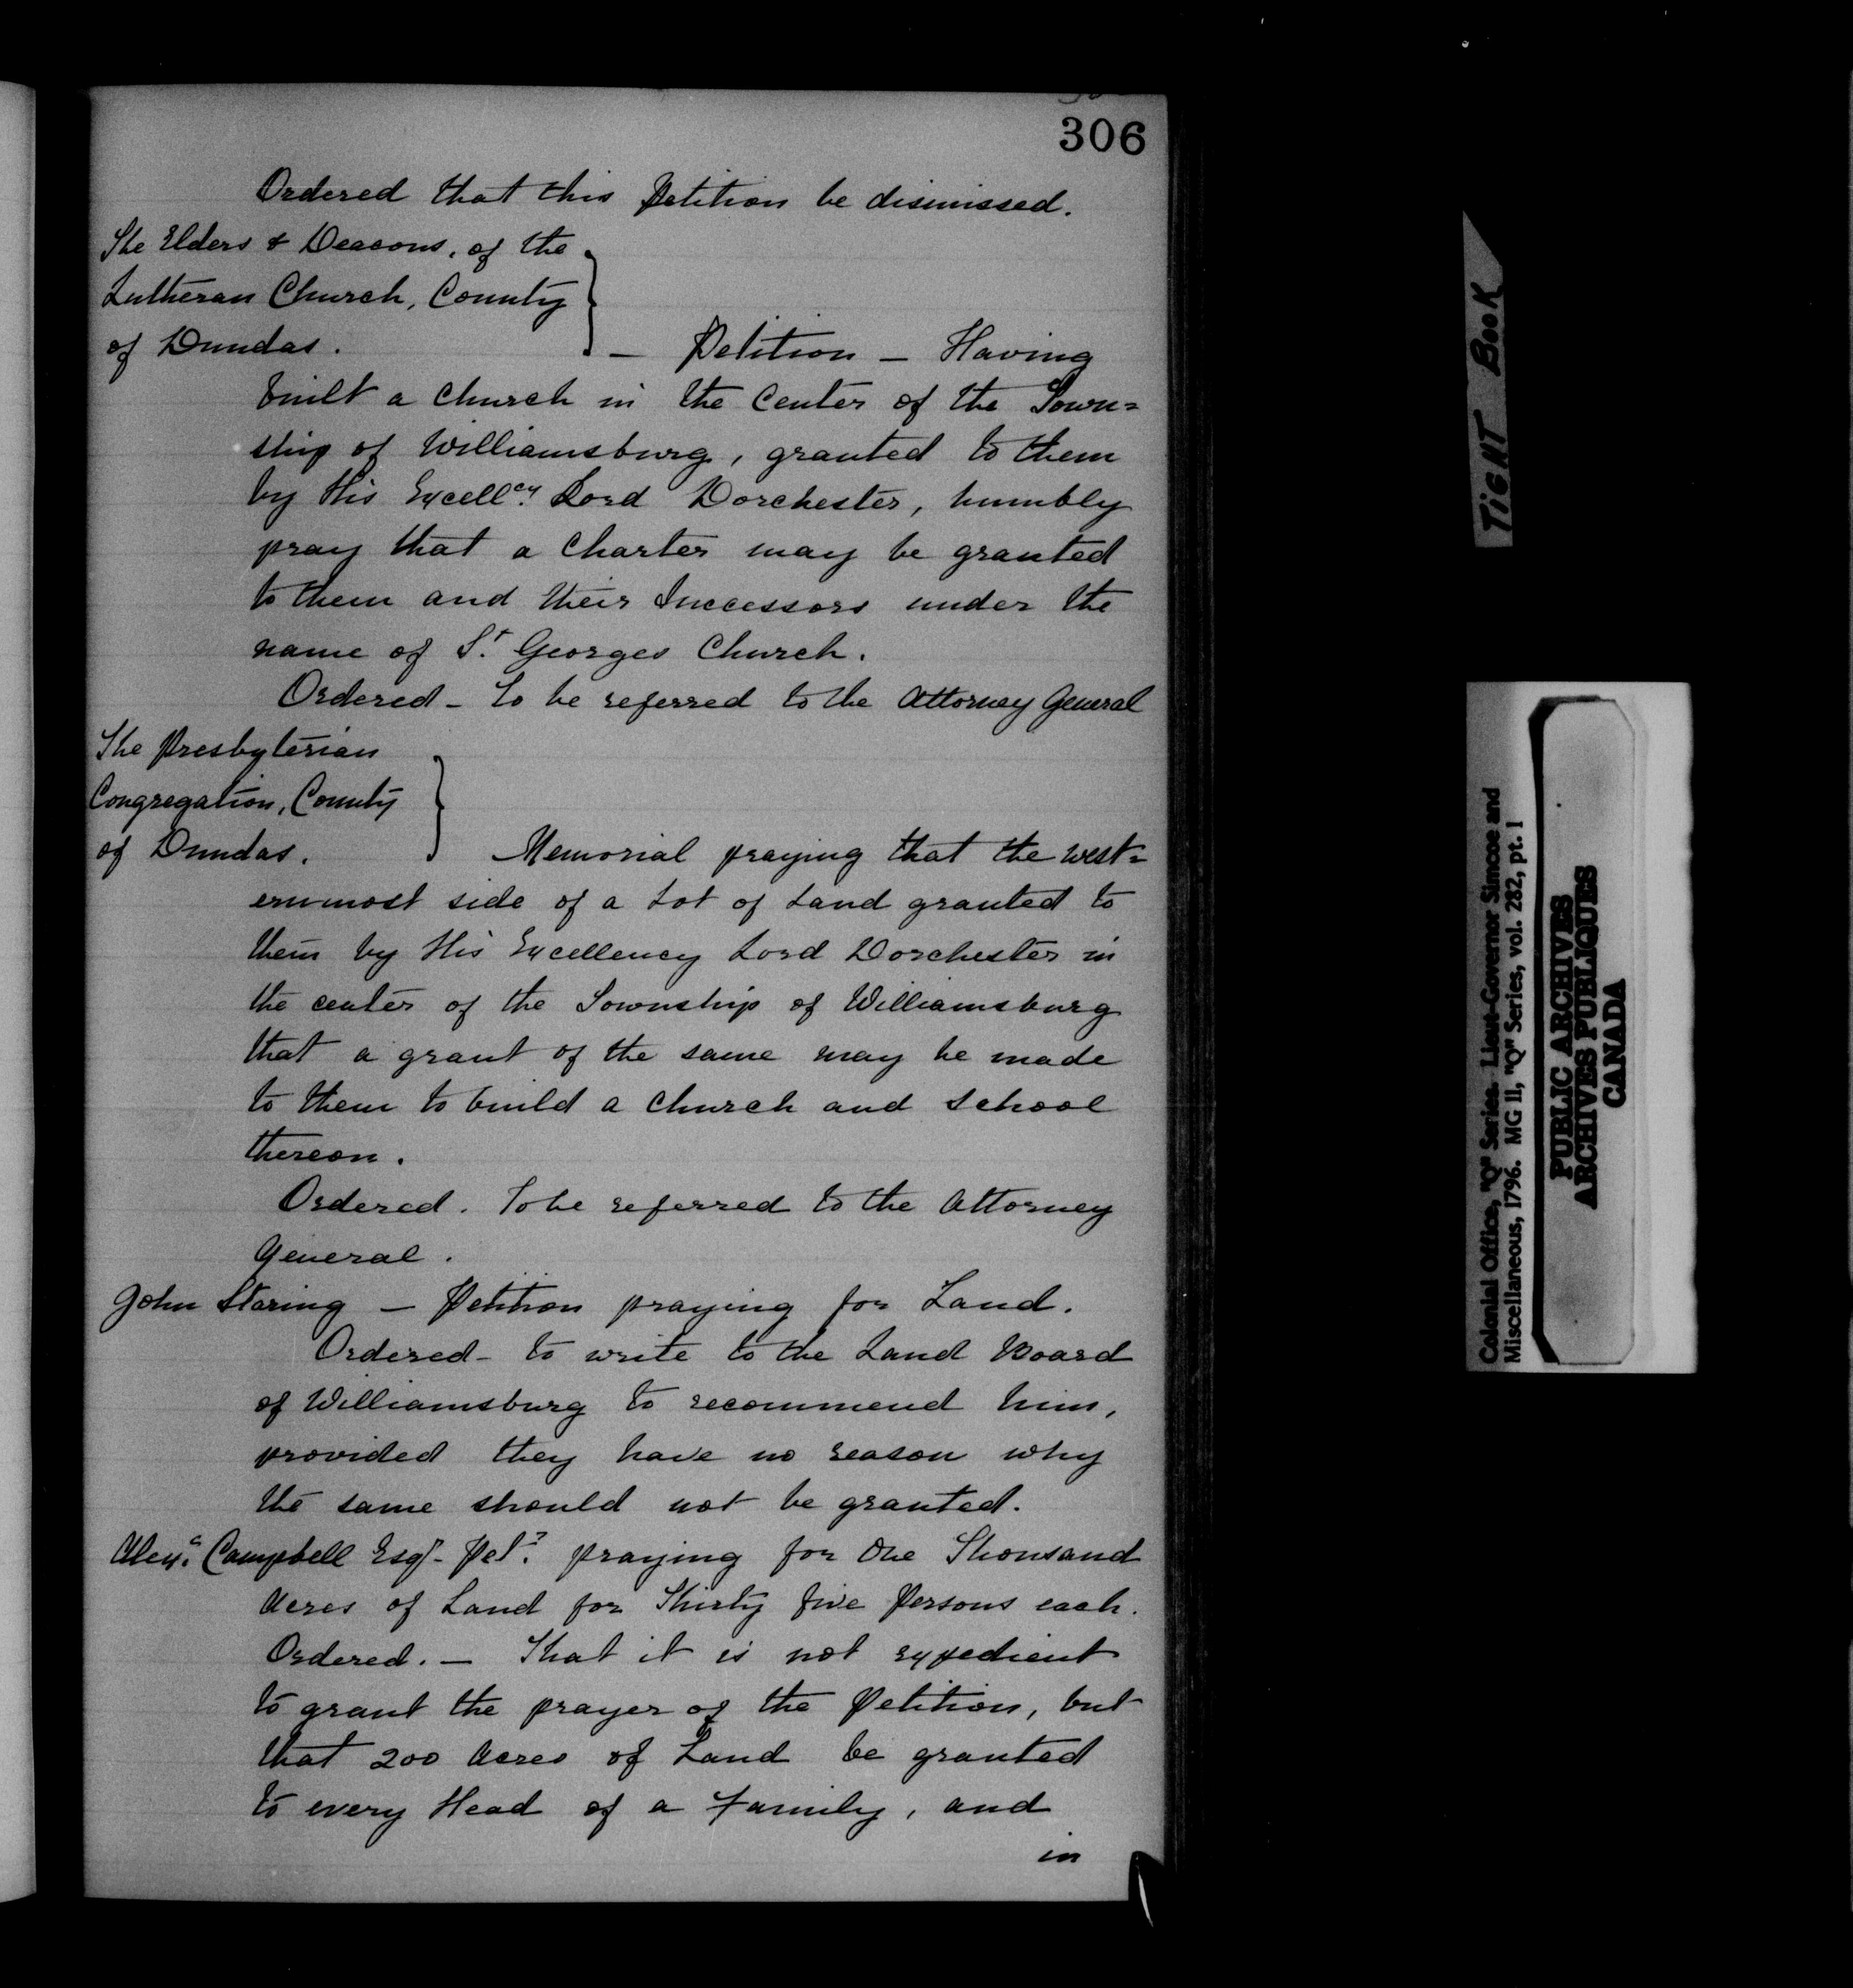 306
Ordered that this Petition be dismissed.
The Elders & Deacons, of the
Lutheran Church, County
of Dundas. — Petition — Having
built a Church in the Center of the Town=
ship of Williamsburg, granted to them
by His Excellcy. Lord Dorchester, humbly
pray that a Charter may be granted
to them and their Successors under the
name of St. Georges Church.
Ordered — To be referred to the Attorney General
The Presbyterian
Congregation, County
of Dundas. Memorial praying that the west=
ernmost side of a Lot of Land granted to
them by His Excellency Lord Dorchester in
the center of the Township of Williamsburg
that a grant of the same may be made
to them to build a Church and School
thereon.
Ordered. To be referred to the Attorney
General.
John Staring — Petition praying for Land.
Ordered — to write to the Land Board
of Williamsburg to recommend him,
provided they have no reason why
the same should not be granted.
Alexr. Campbell Esqr — Petn. praying for One Thousand
Acres of Land for Thirty five Persons each.
Ordered. — That it is not expedient
to grant the prayer of the Petition, but
that 200 Acres of Land be granted
to every Head of a Family, and
in
TIGHT BOOK
Colonial Office, "Q" Series. Lieut-Governor Simcoe and
Miscellaneous, 1796. MG 11, "Q" Series, vol. 282, pt. 1
PUBLIC ARCHIVES
ARCHIVES PUBLIQUES
CANADA